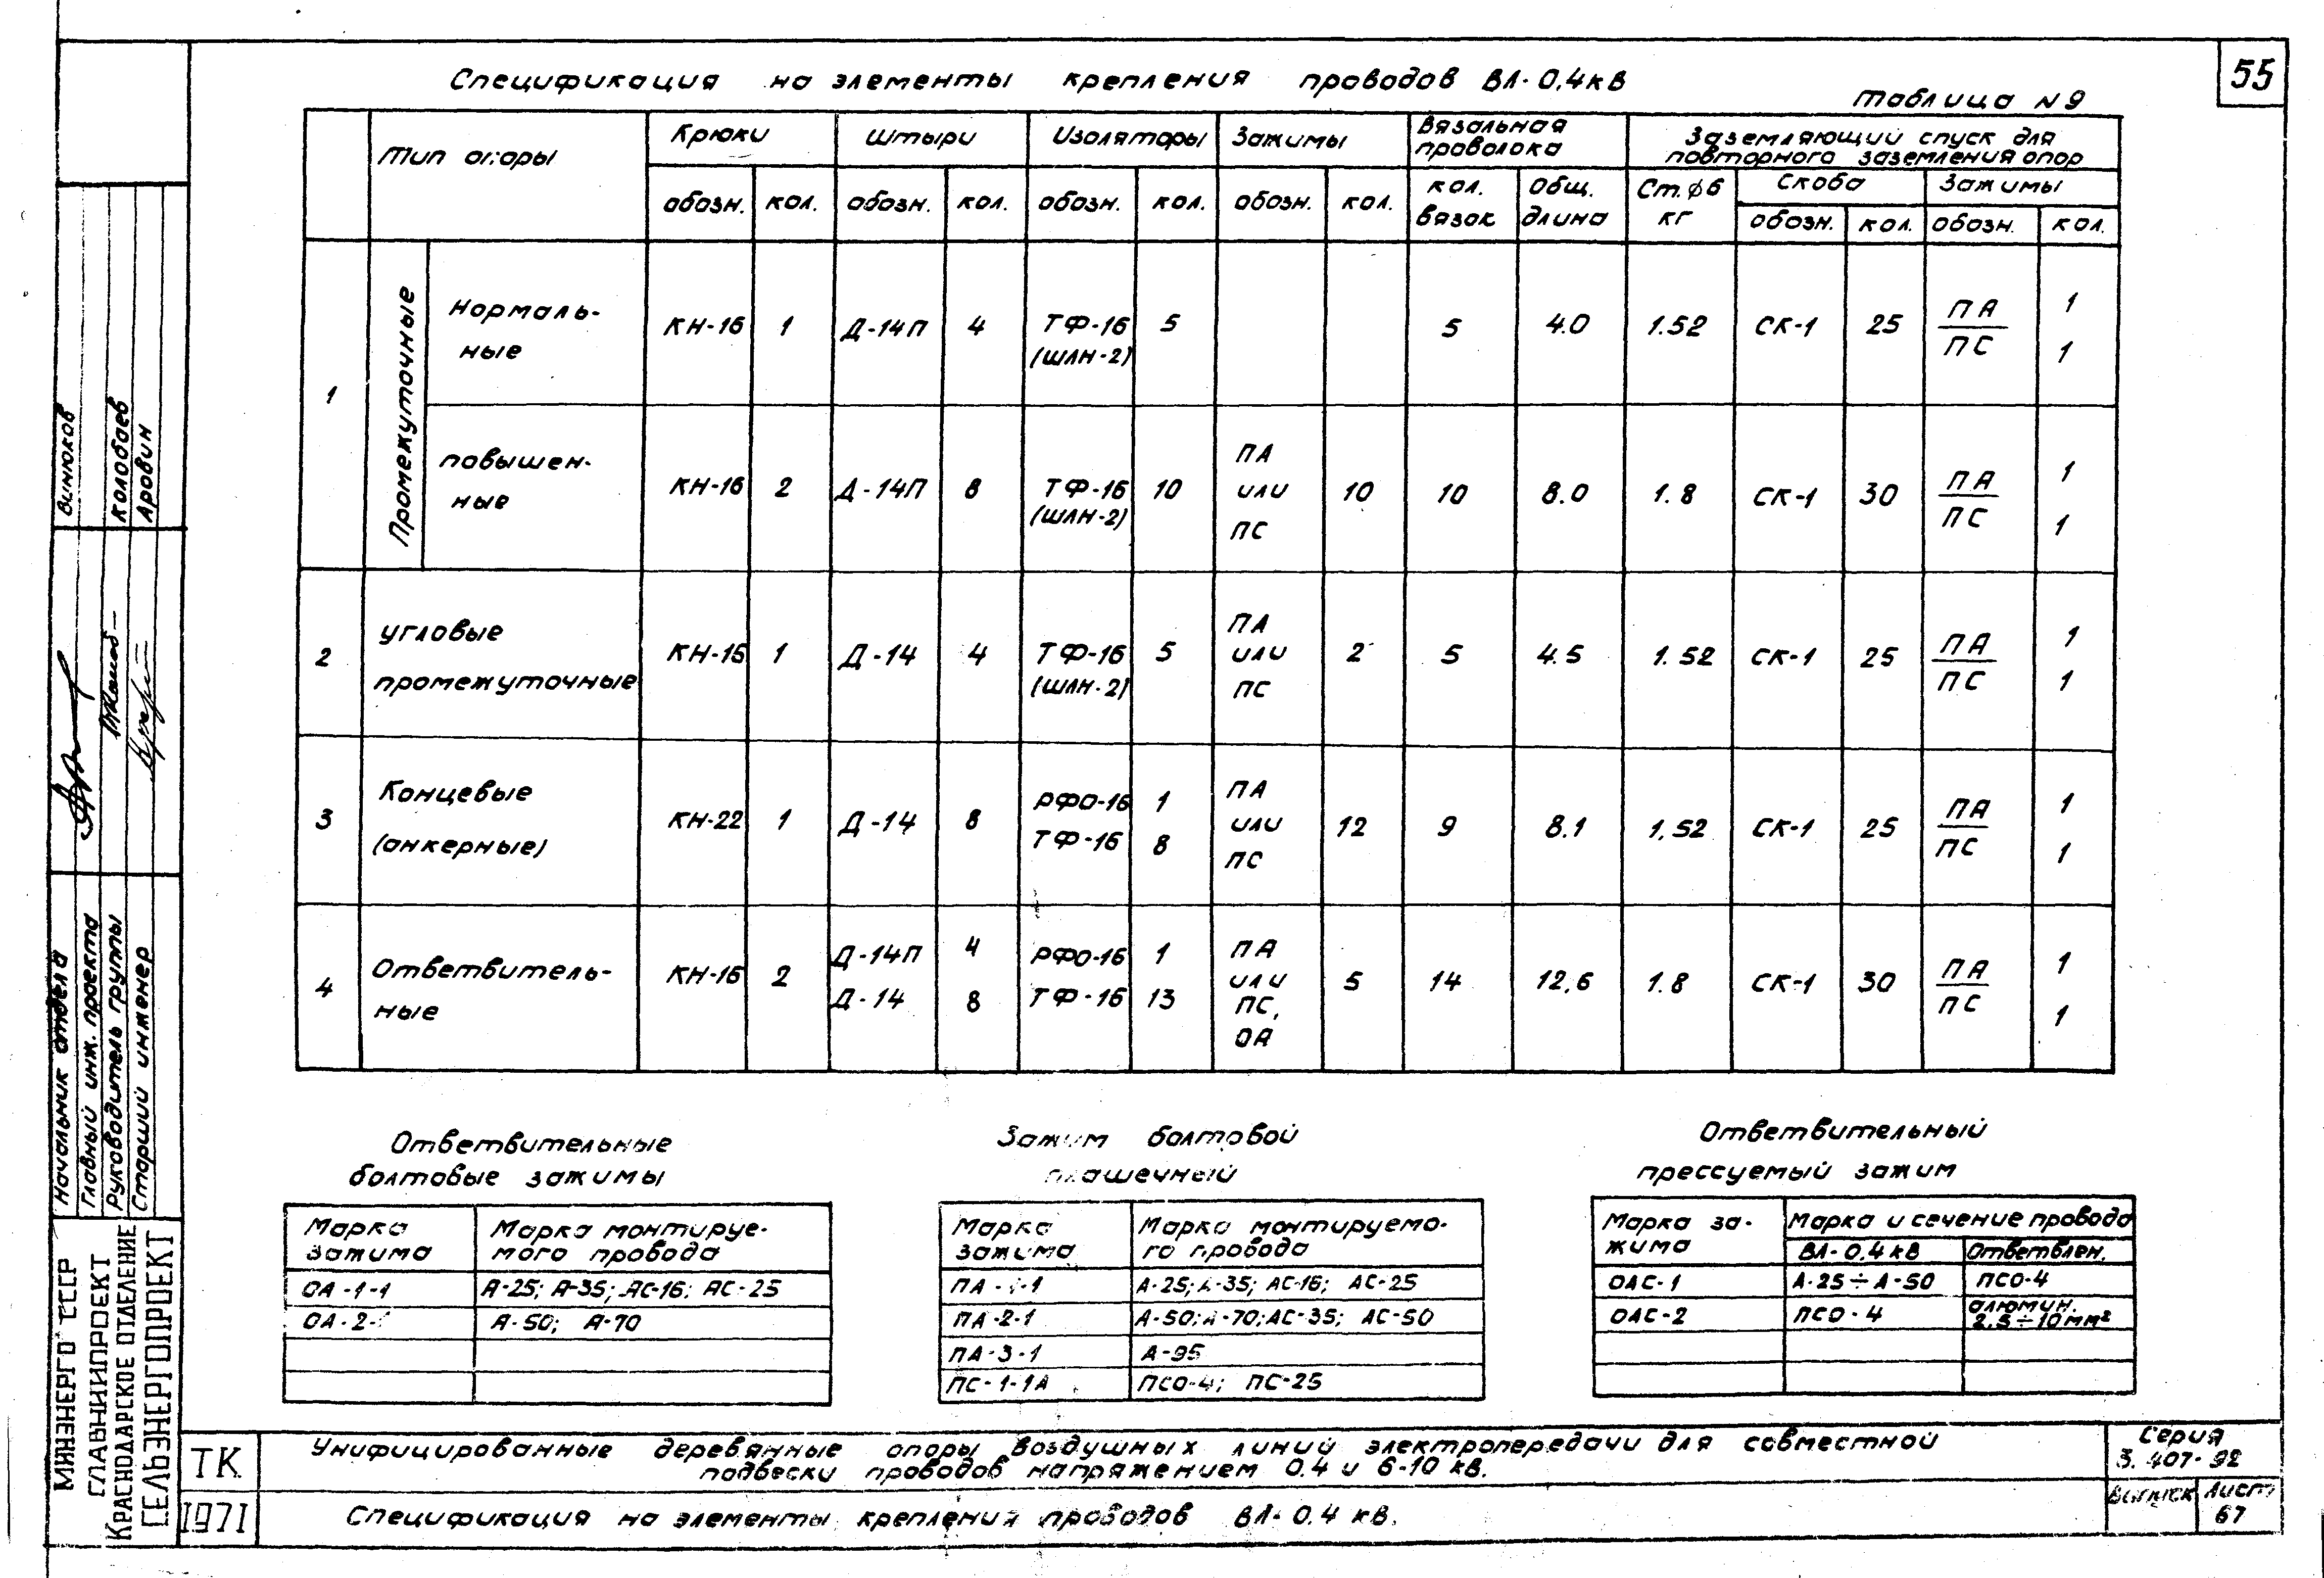 55
Спецификация на элементы крепления проводов ВЛ-0,4кв
Таблица N9
Тип опоры Крюки Штыри Изоляторы Зажимы Вязальная проволока Заземляющий спуск для повторного заземления опор
обозн. кол. обозн. кол. обозн. кол. обозн. кол. кол. вязок Общ. длина Ст.ϕ6 кг Скоба Зажимы
обозн. кол. обозн. кол.
1 Промежуточные
Нормальные КН-16 1 Д-14П 4 ТФ-16 (ШЛН-2) 5 5 4.0 1.52 СК-1 25 ПА/ПС 1 1
повышенные КН-16 2 Д-14П 8 ТФ-16 (ШЛН-2) 10 ПА или ПС 10 10 8.0 1.8 СК-1 30 ПА/ПС 1 1
2 угловые промежуточные КН-16 1 Д-14 4 ТФ-16 (ШЛН-2) 5 ПА или ПС 2 5 4.5 1.52 СК-1 25 ПА/ПС 1 1
3 Концевые (анкерные) КН-22 1 Д-14 8 РФО-16 1 ТФ-16 8 ПА или ПС 12 9 8.1 1,52 СК-1 25 ПА/ПС 1 1
4 Ответвительные КН-16 2 Д-14П 4 Д-14 8 РФО-16 1 ТФ-16 13 ПА или ПС, ОА 5 14 12,6 1.8 СК-1 30 ПА/ПС 1 1
Ответвительные
болтовые зажимы
Марка зажима Марка монтируемого провода
ОА-1-1 А-25; А-35; АС-16; АС-25
ОА-2- А-50; А-70
Зажим болтовой
плашечный
Марка зажима Марка монтируемого провода
ПА-1-1 А-25; А-35; АС-16; АС-25
ПА-2-1 А-50; А-70; АС-35; АС-50
ПА-3-1 А-95
ПС-1-1А ПСО-4; ПС-25
Ответвительный
прессуемый зажим
Марка зажима Марка и сечение провода
ВЛ-0.4кВ Ответвлен.
ОАС-1 А-25÷А-50 ПСО-4
ОАС-2 ПСО-4 алюмин. 2,5÷10мм²
ТК
1971
Унифицированные деревянные опоры воздушных линий электропередачи для совместной
подвески проводов напряжением 0.4 и 6-10 кв.
Спецификация на элементы крепления проводов ВЛ-0.4 кв.
Серия
3.407-92
Выпуск Лист
67
МИНЭНЕРГО СССР
ГЛАВНИИПРОЕКТ
КРАСНОДАРСКОЕ ОТДЕЛЕНИЕ
СЕЛЬЭНЕРГОПРОЕКТ
Начальник отдела
Главный инж. проекта
Руководитель группы
Старший инженер
Вынюков
Колобаев
Аровин